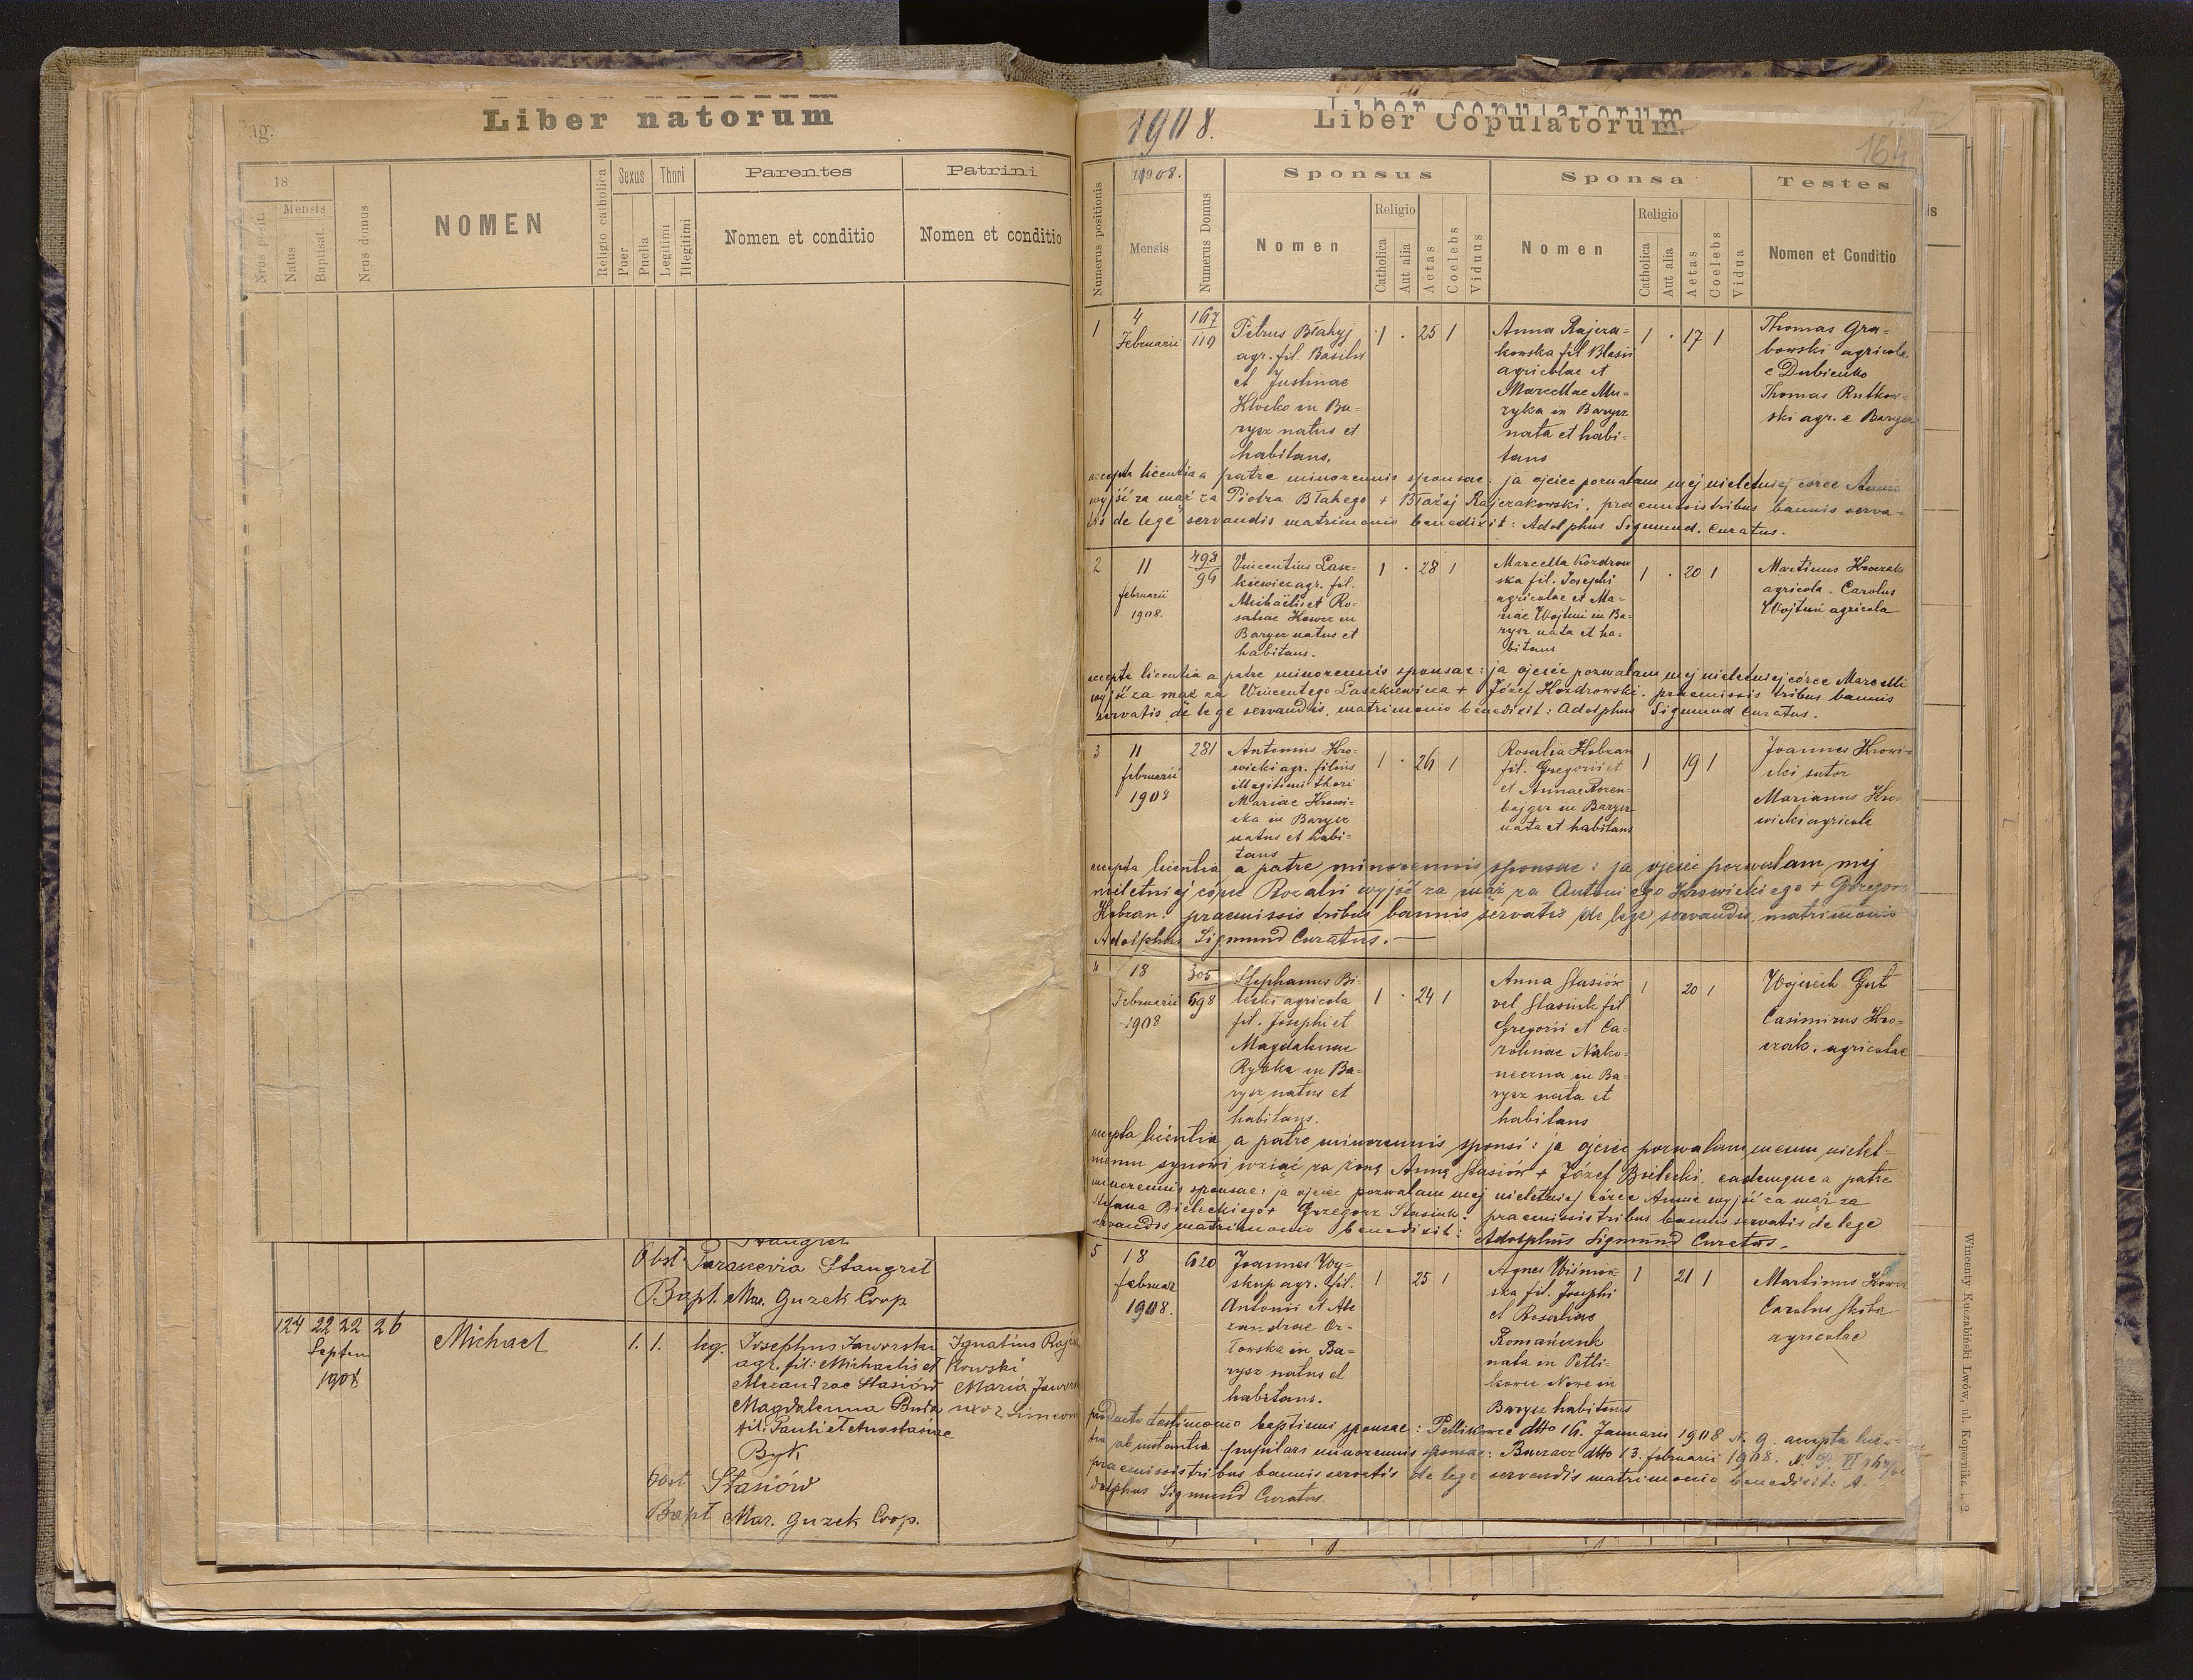 Liber natorum
ag.
18
Mensis
Nrus posit.
Natus
Baptisat.
Nrus domus
NOMEN
Religio catholica
Sexus
Puer
Puella
Thori
Legitimi
Illegitimi
Parentes
Nomen et conditio
Patrini
Nomen et conditio
Stangret
Obst. Parascevia Stangret
Bapt. Mar. Guzek Coop.
124 22 22 26
Septem
1908
Michael
1. 1. leg.
Josephus Jaworski
agr. fil: Michaelis et
Alexandrae Stasiów
Magdalenna Buda
fil: Pauli et Anastasiae
Byk
Ignatius
kowski
Maria
uxor
Obst Stasiów
Bapt Mar. Guzek Coop.
1908.
Liber copulatorum
Liber Copulatorum
164
Numerus positionis
1908.
Mensis
Numerus Domus
Sponsus
Nomen
Religio
Catholica
Aut alia
Aetas
Coelebs
Viduus
Sponsa
Nomen
Religio
Catholica
Aut alia
Aetas
Coelebs
Vidua
Testes
Nomen et Conditio
1
4
Februarii
167
119
Petrus Błahyj
agr. fil. Basilii
et Justinae
Kłocko in Ba-
rysz natus et
habitans.
1 . 25 1
Anna Rajcza-
kowska fil Blasii
agricolae et
Marcellae Mu-
zyka in Barysz
nata et habi-
tans
1 . 17 1
Thomas Gra-
bowski agricola
e Dubienko
Thomas Rutkow-
ski agr. e Barysz
accepta licentia a patre minorennis sponsae: ja ojciec pozwalam mej nieletniej córce Annie
wyjść za mąż za Piotra Błahego + Błażej Rajczakowski. praemissis tribus bannis serva-
tis de lege servandis matrimonio benedixit: Adolphus Sigmund. Curatus.
2
11
februarii
1908.
498
94
Vincentius Lasz-
kiewicz agr. fil.
Michaëlis et Ro-
saliae Kowcz in
Barysz natus et
habitans.
1 . 28 1
Marcella Kozdrow
ska fil. Josephi
agricolae et Ma-
riae Wojtuń in Ba-
rysz nata et ha-
bitans
1 . 20 1
Martinus Kroczak
agricola. Carolus
Wojtuń agricola
accepta licentia a patre minorennis sponsae: ja ojciec pozwalam mej nieletniej córce Marcelli
wyjść za mąż za Wincentego Laszkiewicza + Józef Kozdrowski. praemissis tribus bannis
servatis de lege servandis, matrimonio benedixit: Adolphus Sigmund Curatus.
3
11
februarii
1908
281
Antonius Kro-
wicki agr. filius
illegitimi thori
Mariae Krowi-
cka in Barysz
natus et habi-
tans
1 . 26 1
Rosalia Kobzan
fil. Gregorii et
et Annae Rozen-
bajger in Barysz
nata et habitans
1 19 1
Joannes Krowi-
cki sutor
Marianus Kro-
wicki agricola
accepta licentia a patre minorennis sponsae: ja ojciec pozwalam mej
nieletniej córce Rozalii wyjść za mąż za Antoniego Krowickiego + Grzegorz
Kobzan. praemissis tribus bannis servatis de lege servandis, matrimonio
Adolphus Sigmund Curatus.
4
18
Februarii
1908
305
698
Stephanus Bi-
lecki agricola
fil. Josephi et
Magdalenae
Rybka in Ba-
rysz natus et
habitans.
1 . 24 1
Anna Stasiów
vel Stasiuk fil
Gregorii et Ca-
rolinae Nako-
neczna in Ba-
rysz nata et
habitans
1 20 1
Wojciech Gut
Casimirus Kro-
czak. agricolae
accepta licentia a patre minorennis sponsi: ja ojciec pozwalam memu nielet-
niemu synowi wziąć za żonę Annę Stasiów + Józef Bielecki. eademque a patre
minorennis sponsae: ja ojciec pozwalam mej nieletniej córce Annie wyjść za mąż za
Stefana Bieleckiego + Grzegorz Stasiuk. praemissis tribus bannis servatis de lege
servandis matrimonio benedixit: Adolphus Sigmund Curatus.
5
18
februar
1908.
620
Joannes Wy-
skup agr. fil.
Antonii et Ale
xandrae Or-
łowska in Ba-
rysz natus et
habitans.
1 25 1
Agnes Wismow
ska fil. Josephi
et Rosaliae
Romańczuk
nata in Petli-
kowce Nowe in
Barysz habitans
1 21 1
Martinus Kowcz
Carolus Skiba
agricolae
producto testimonio baptismi sponsae: Petlikowce dtto 16. Januarii 1908 N. 9. accepta licen-
tia ab instantia pupilari minorennis sponsae: Buczacz dtto 13. februarii 1908. N.
praemissis tribus bannis servatis de lege servandis matrimonio benedixit: A
dolphus Sigmund Curatus.
Wincenty Kuczabiński Lwów, ul. Kopernika l. 2.